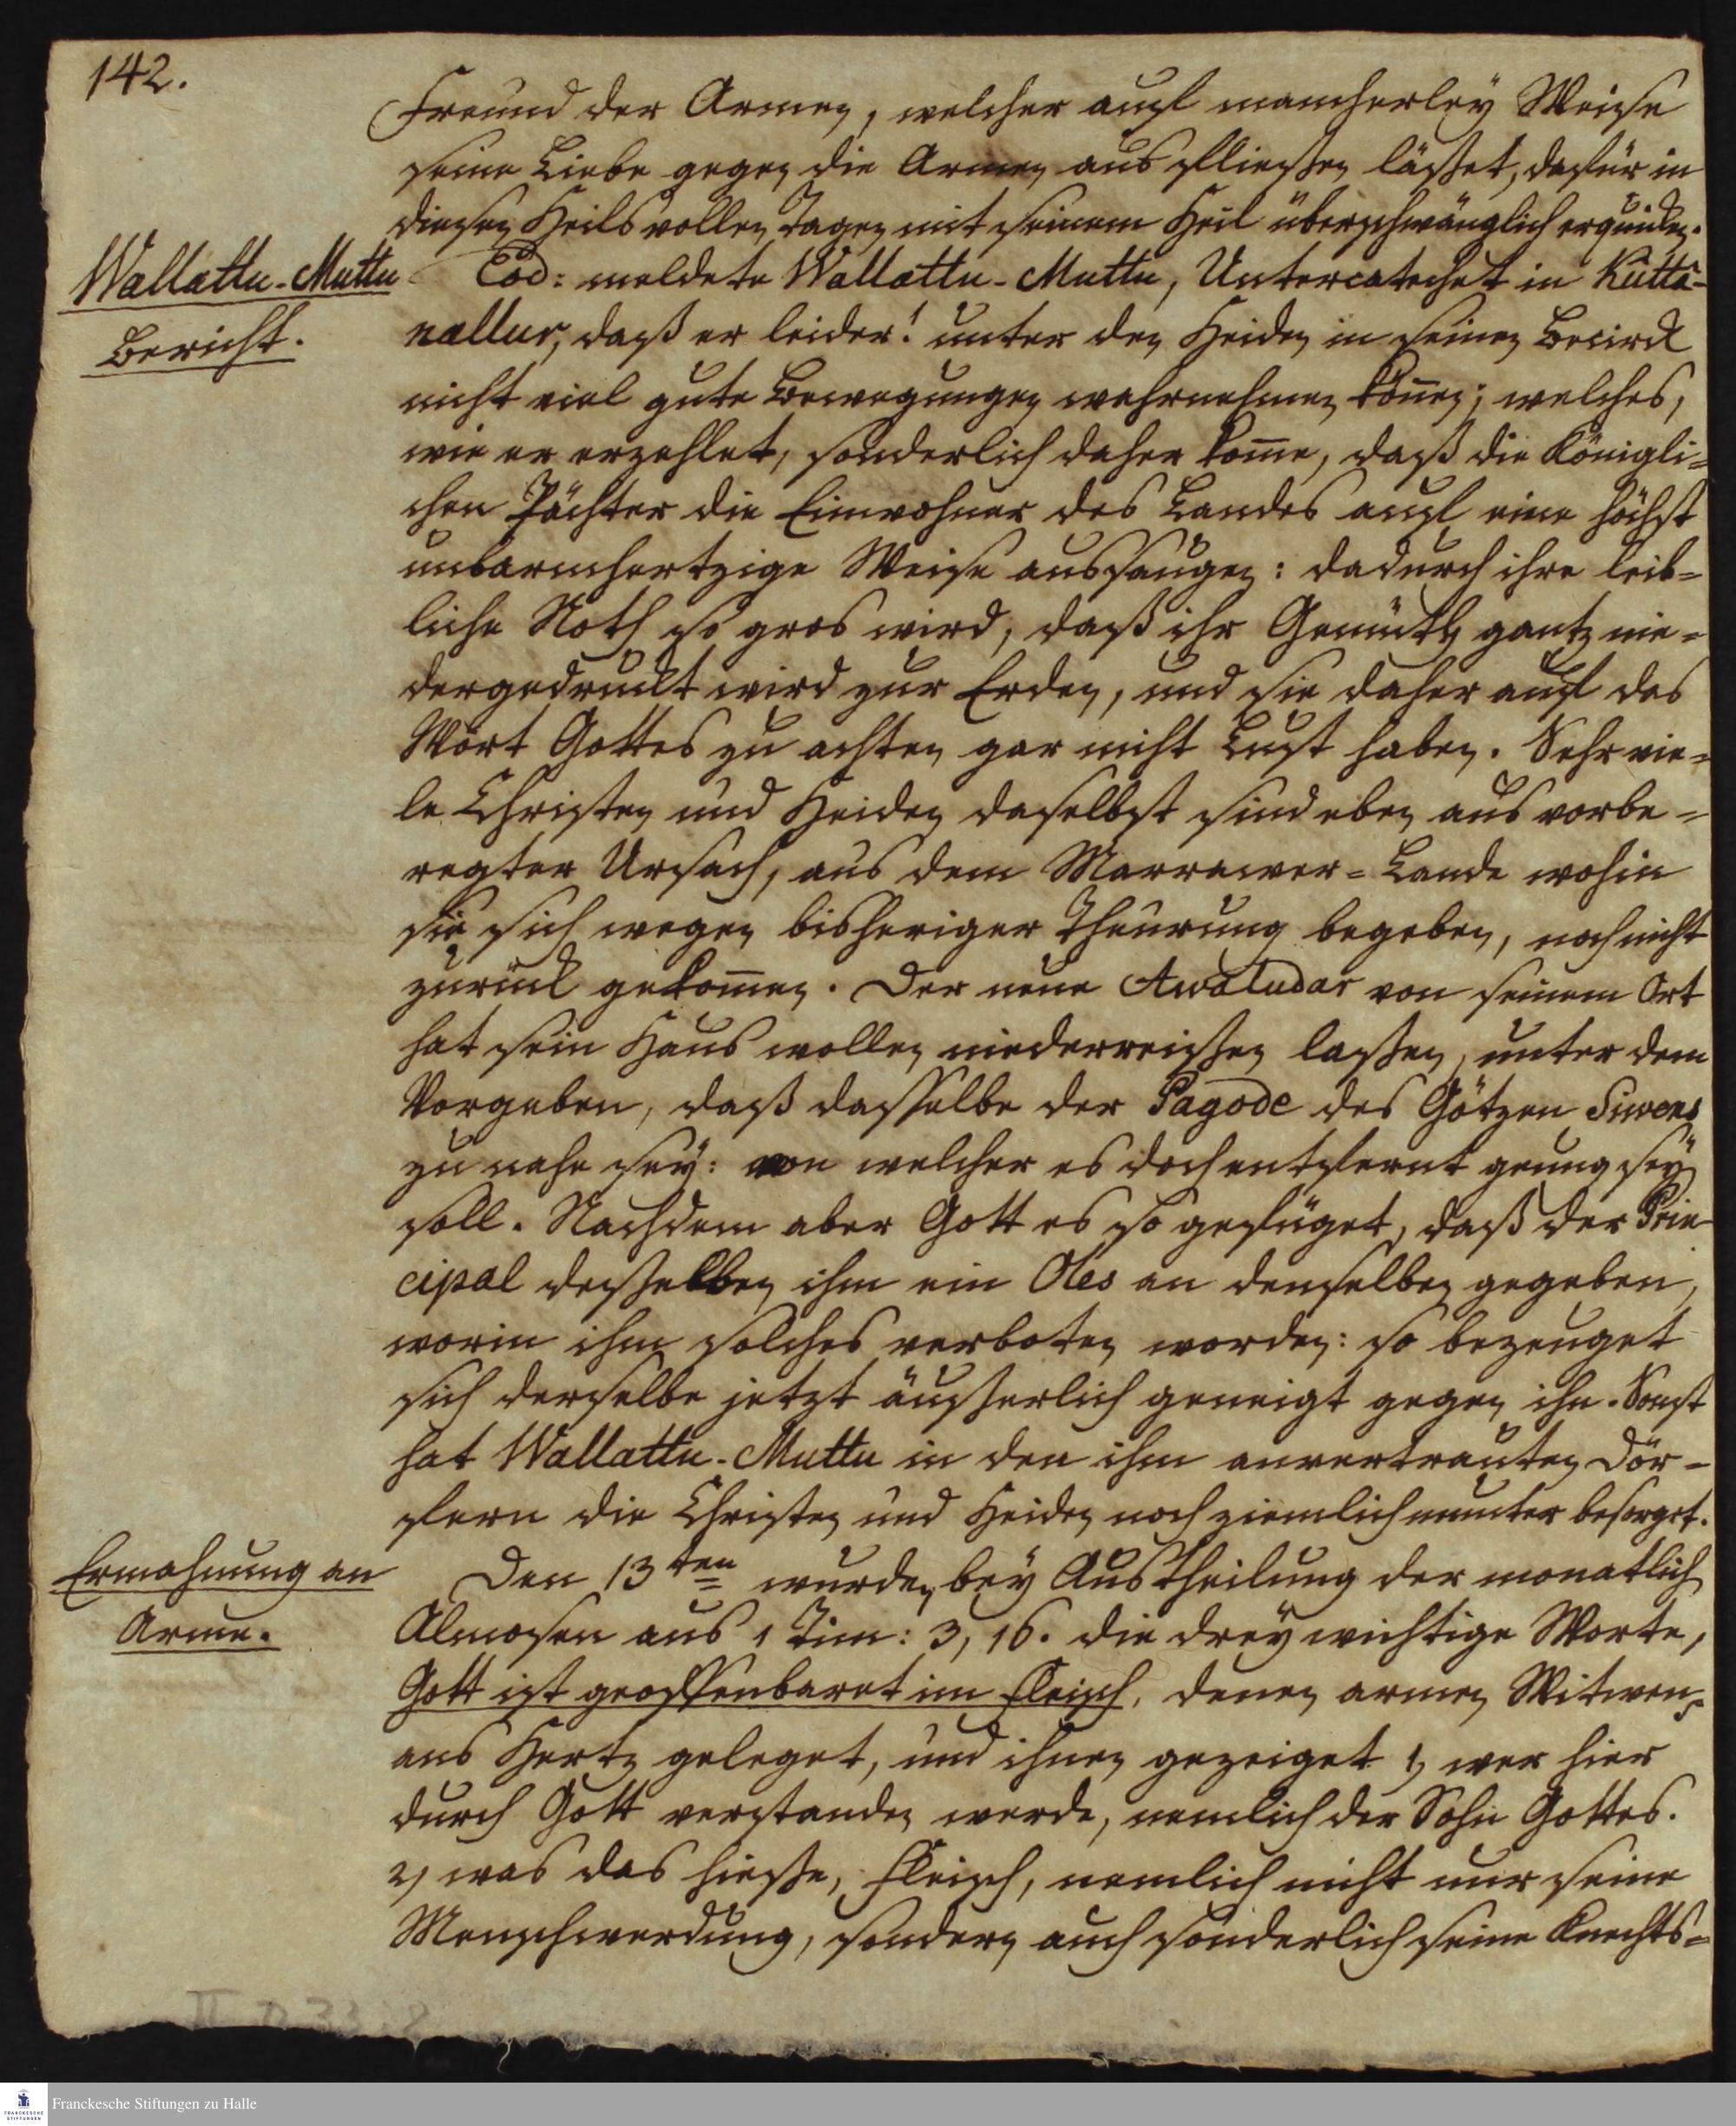 142.
Freund der Armen, welcher auf mancherley Weise
seine Liebe gegen die Armen aus fliessen lässet, dafür in
diesen Heils vollen Tagen mit seinem Heil überschwänglich erquicken.
Wallattu-Muttu
Bericht.
Eod: meldete Wallattu-Muttu, Untercatechet in Kutta-
nallur, daß er leider! unter den Heiden in seinen Bezirck
nicht viel gute Bewegungen wahrnehmen könn̄en; welches,
wie er erzehlet, sonderlich daher kom̄e, daß die Königli=
chen Pächter die Einwohner des Landes auf eine höchst
unbarmhertzige Weise aussaugen: dadurch ihre leib=
liche Noth so gros wird, daß ihr Gemüth gantz nie=
dergedruckt wird zur Erden, und sie daher auf das
Wort Gottes zu achten gar nicht Lust haben. Sehr vie=
le Christen und Heiden daselbst sind eben aus vorbe=
regter Ursach, aus dem Marrawer=Lande wohin
sie sich wegen bisheriger Theurung begeben, noch nicht
zurück gekom̄en. Der neue Awaludar von seinem Ort
hat sein Haus wollen niederreissen lassen, unter dem
Vorgeben, daß dasselbe der Pagode des Götzen Siwens
zu nahe sey: von welcher es doch entfernt genung seyn
soll. Nachdem aber Gott es so gefüget, daß der Prin-
cipal desselben ihm ein Oles an denselben gegeben,
worin ihm solches verboten worden: so bezeuget
sich derselbe jetzt äusserlich geneigt gegen ihn. Sonst
hat Wallattu-Muttu in den ihm anvertrauten Dör=
fern die Christen und Heiden noch ziemlich munter besorget.
Ermahnung an
Arme.
Den 13ten wurden bey Austheilung der monatlich
Almosen aus 1 Tim: 3, 16. die drey wichtige Worte,
Gott ist geoffenbaret im Fleisch, denen armen Witwen
ans Hertz geleget, und ihnen gezeiget 1, wer hier
durch Gott verstanden werde, nemlich der Sohn Gottes.
2, was das hiesse, Fleisch, nemlich nicht nur seine
Menschwerdung, sondern auch sonderlich seine Knechts=
Franckesche Stiftungen zu Halle
FRANCKESCHE
STIFTUNGEN